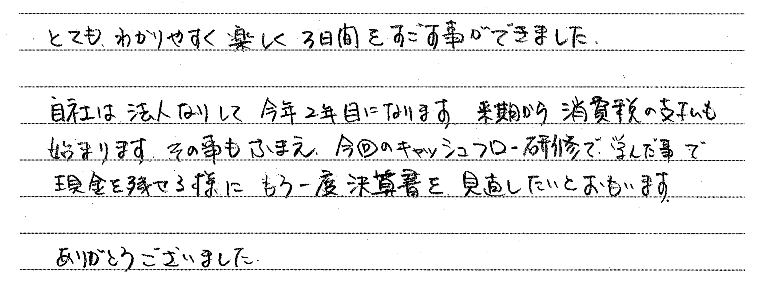 とても、わかりやすく楽しく3日間をすごす事ができました。
自社は法人なりして今年2年目になります 来期から消費税の支払も
始まります。その事もふまえ、今回のキャッシュフロー研修で学んだ事で
現金を残せる様にもう一度決算書を見直したいとおもいます
ありがとうございました。